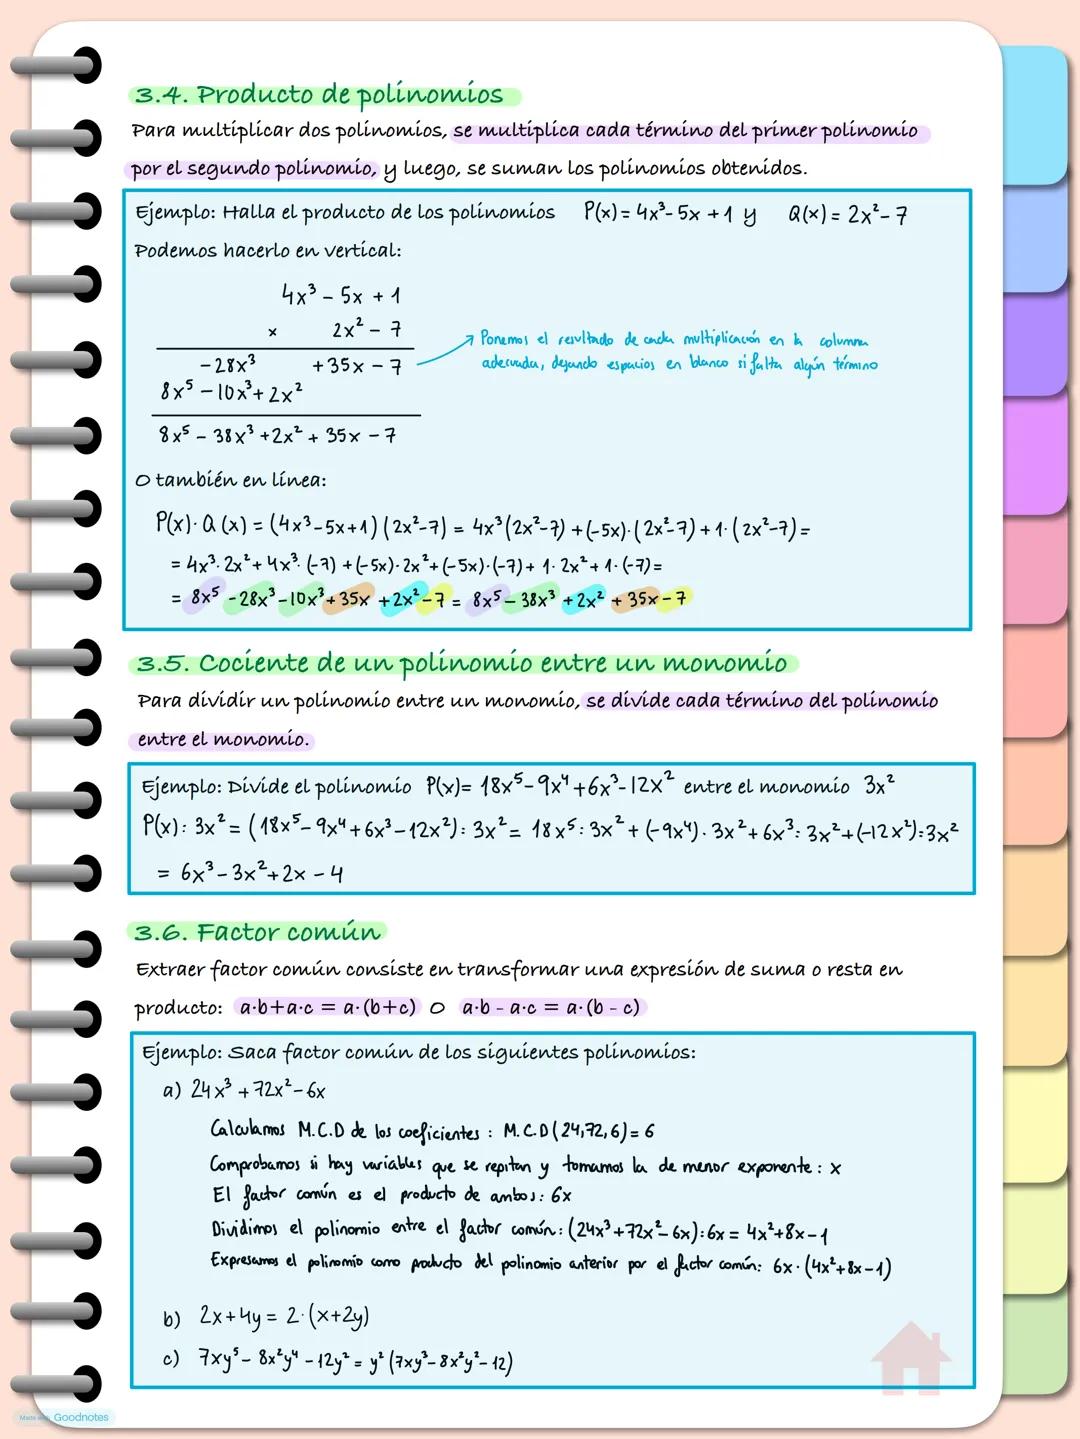 3.4. Producto de polinomios
Para multiplicar dos polinomios, se multiplica cada término del primer polinomio
por el segundo polinomio, y luego, se suman los polinomios obtenidos.
Ejemplo: Halla el producto de los polinomios P(x) = 4x³ - 5x + 1 y Q(x) = 2x² - 7
Podemos hacerlo en vertical:
4x³ - 5x + 1
x 2x² - 7
-28x³ +35x - 7
8x⁵ - 10x³ + 2x²
8x⁵ - 38x³ + 2x² + 35x - 7
Ponemos el resultado de cada multiplicación en la columna
adecuada, dejando espacios en blanco si falta algún término
O también en línea:
P(x)·Q(x) = (4x³-5x+1)(2x²-7) = 4x³(2x²-7) + (-5x)·(2x²-7) + 1·(2x²-7) =
= 4x³·2x² + 4x³·(-7) + (-5x)·2x² + (-5x)·(-7) + 1·2x² + 1·(-7) =
= 8x⁵ - 28x³ - 10x³ + 35x + 2x² - 7 = 8x⁵ - 38x³ + 2x² + 35x - 7
3.5. Cociente de un polinomio entre un monomio
Para dividir un polinomio entre un monomio, se divide cada término del polinomio
entre el monomio.
Ejemplo: Divide el polinomio P(x) = 18x⁵ - 9x⁴ + 6x³ - 12x² entre el monomio 3x²
P(x): 3x² = (18x⁵ - 9x⁴ + 6x³ - 12x²): 3x² = 18x⁵: 3x² + (-9x⁴). 3x² + 6x³: 3x² + (-12x²): 3x²
= 6x³ - 3x² + 2x - 4
3.6. Factor común
Extraer factor común consiste en transformar una expresión de suma o resta en
producto: a·b+a·c = a·(b+c) O a·b - a·c = a·(b - c)
Ejemplo: Saca factor común de los siguientes polinomios:
a) 24x³ + 72x² - 6x
Calculamos M.C.D de los coeficientes: M.C.D(24,72,6) = 6
Comprobamos si hay variables que se repitan y tomamos la de menor exponente: x
El factor común es el producto de ambos: 6x
Dividimos el polinomio entre el factor común: (24x³+72x²-6x):6x = 4x²+8x-1
Expresamos el polinomio como producto del polinomio anterior por el factor común: 6x·(4x²+8x-1)
b) 2x+4y = 2·(x+2y)
c) 7xy⁵ - 8x²y⁴ - 12y² = y²(7xy³ - 8x²y² - 12)
Made with Goodnotes